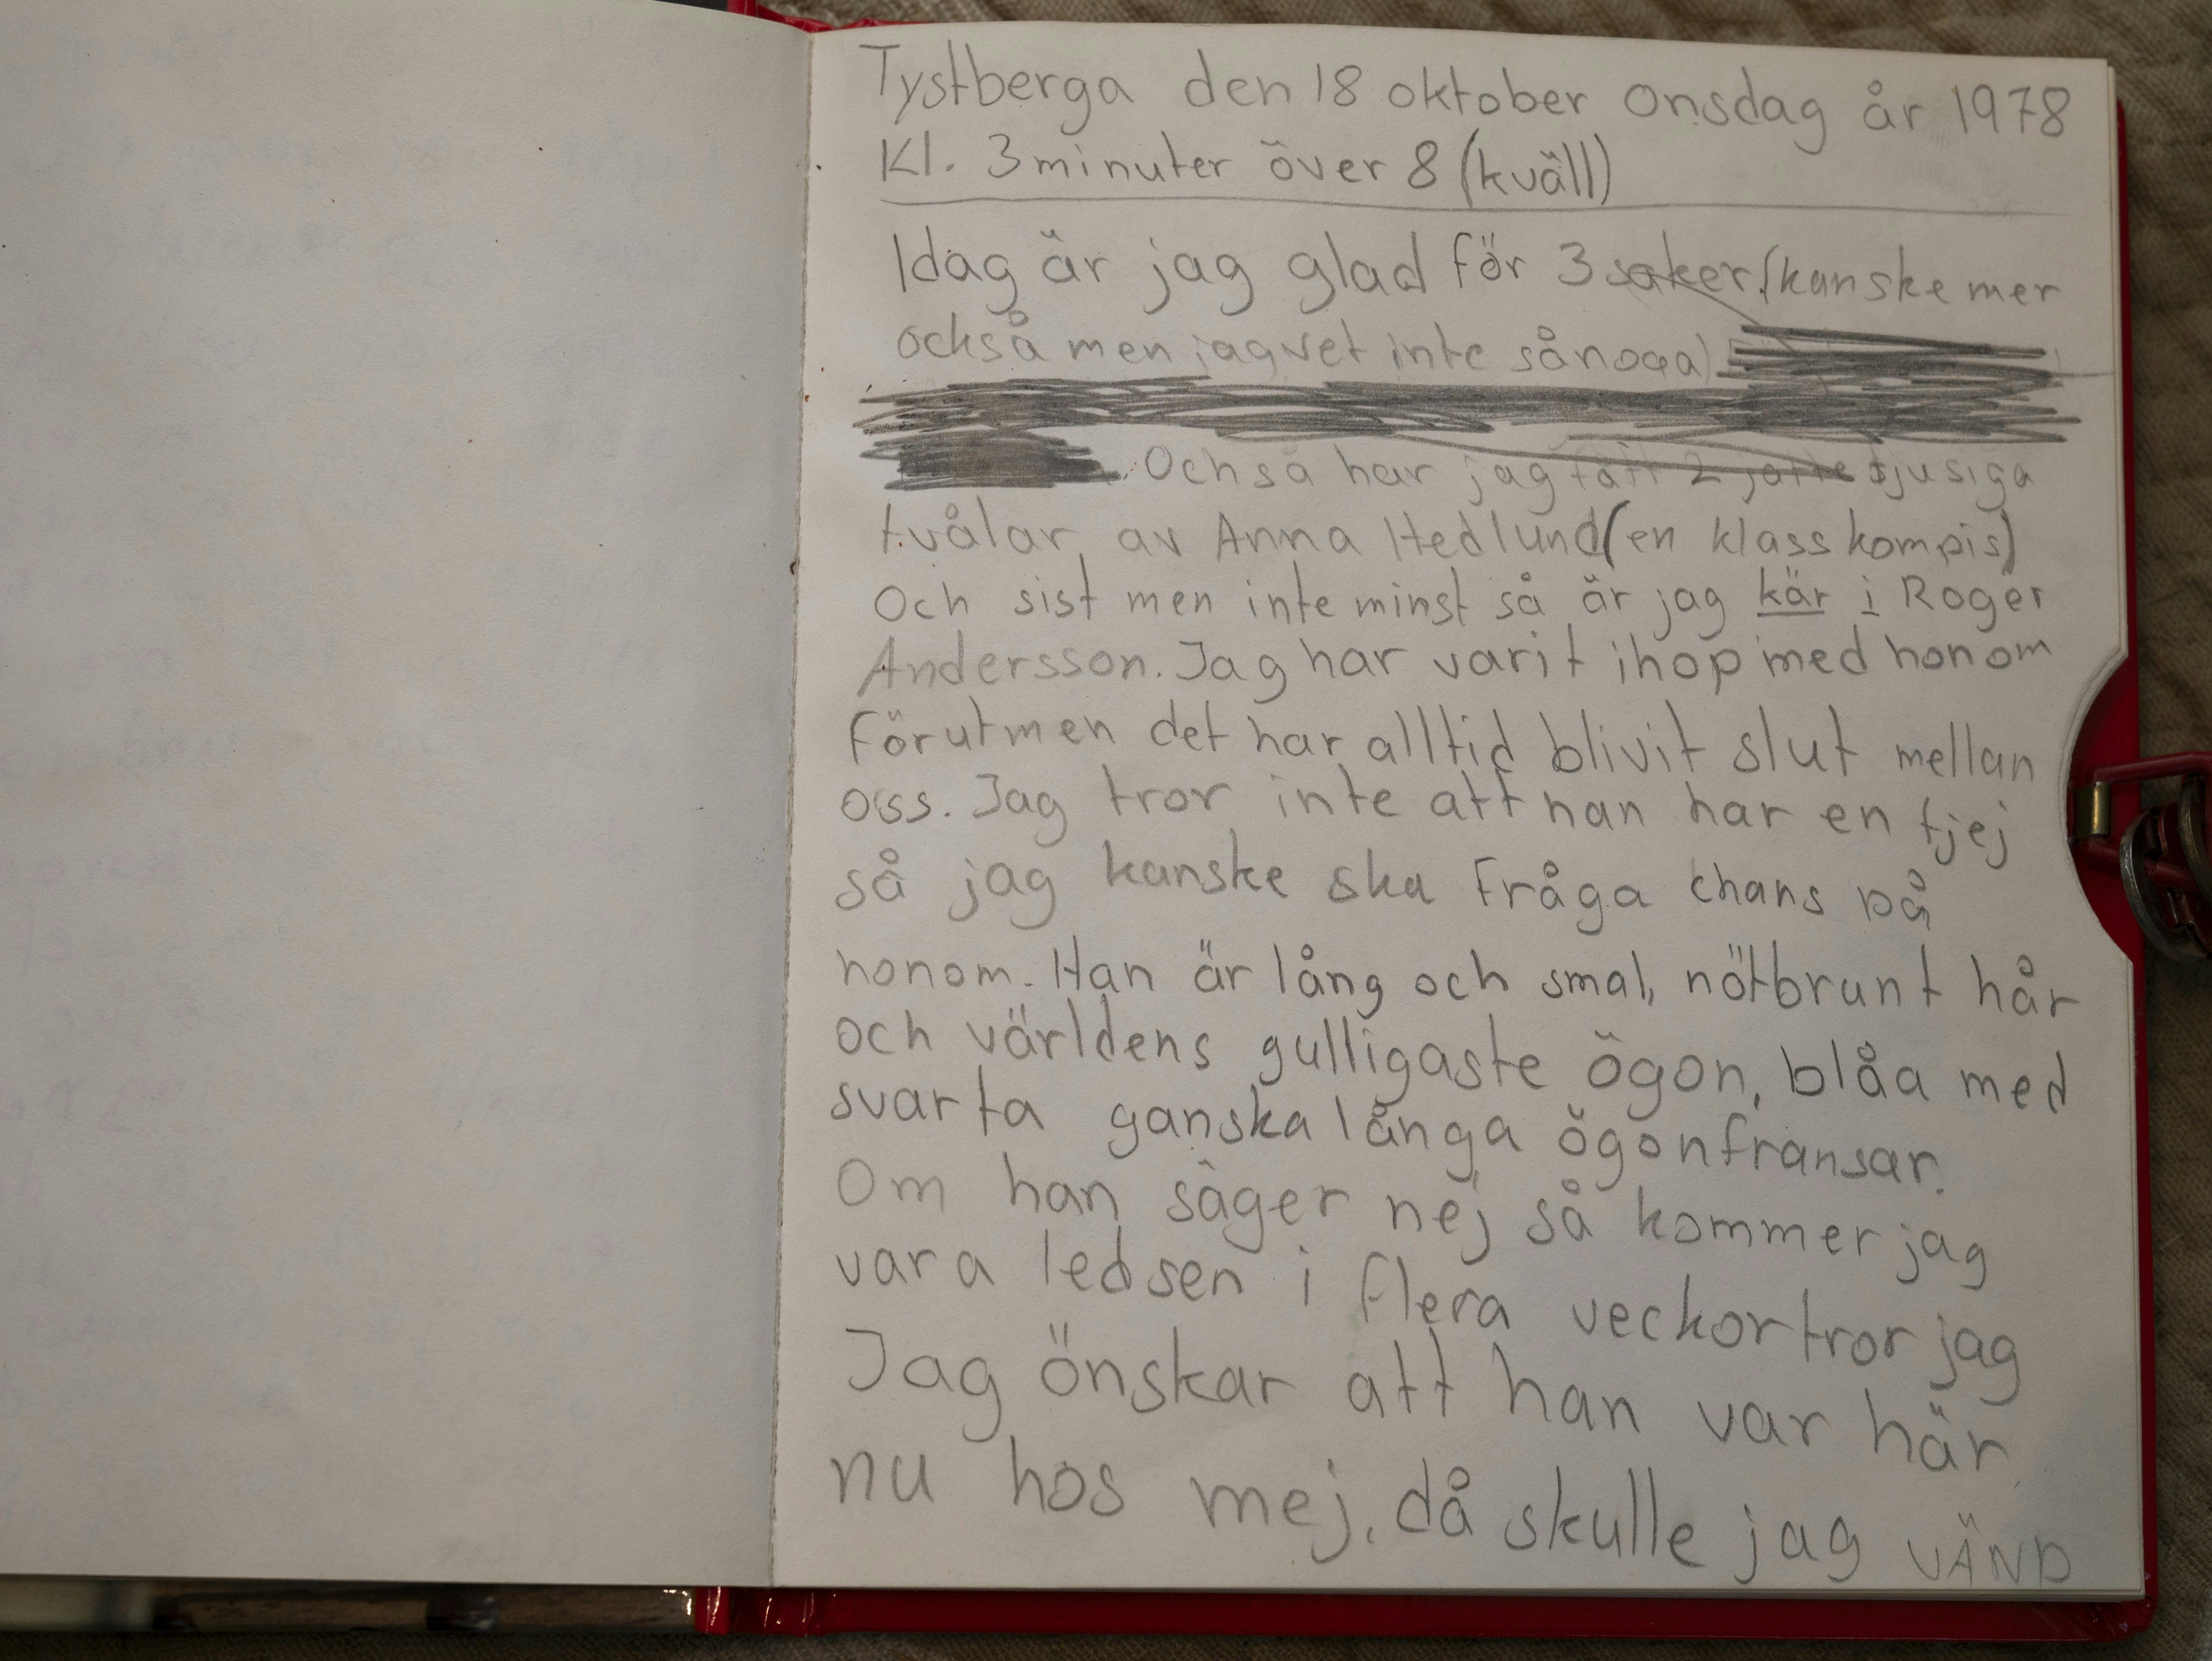 Tystberga den 18 oktober onsdag år 1978
Kl. 3 minuter över 8 (kväll)
Idag är jag glad för 3 saker. (kanske mer
också men jag vet inte så noga)
Och så har jag fått 2 jätte tjusiga
tvålar av Anna Hedlund (en klass kompis)
Och sist men inte minst så är jag kär i Roger
Andersson. Jag har varit ihop med honom
förut men det har alltid blivit slut mellan
oss. Jag tror inte att han har en tjej
så jag kanske ska fråga chans på
honom. Han är lång och smal, nötbrunt hår
och världens gulligaste ögon, blåa med
svarta ganska långa ögonfransar.
Om han säger nej så kommer jag
vara ledsen i flera veckor tror jag
Jag önskar att han var här
nu hos mej, då skulle jag VÄND